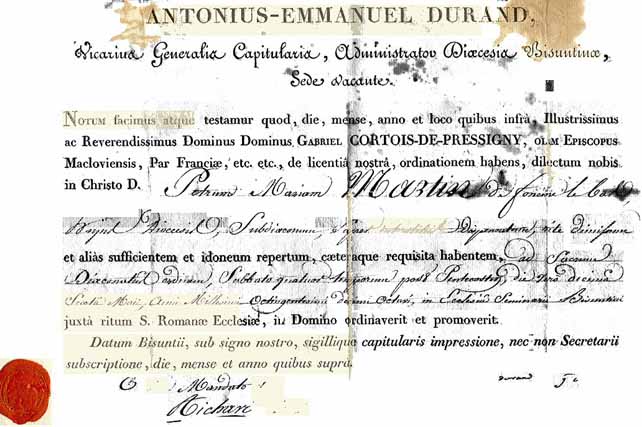 ANTONIUS-EMMANUEL DURAND,
Vicarius Generalis Capitularis, Administrator Diœcesis Bisuntinæ,
Sede vacante.
NOTUM facimus atque testamur quod, die, mense, anno et loco quibus infrà, Illustrissimus
ac Reverendissimus Dominus Dominus GABRIEL CORTOIS-DE-PRESSIGNY, OLIM EPISCOPUS
Macloviensis, Par Franciæ, etc. etc., de licentiâ nostrâ, ordinationem habens, dilectum nobis
in Christo D. Petrum Mariam Martin de foncine le
Diœcesis, Subdiaconum, Dispensatum, rite dimissum
et aliàs sufficientem et idoneum repertum, cæteraque requisita habentem, ad Sacrum
Diaconatus ordinem, Sabbato quatuor temporum post Pentecosten, die
Maii, anni Millesimi Octingentesimi decimi octavi, in Ecclesiâ Seminarii Bisuntini
juxtà ritum S. Romanæ Ecclesiæ, in Domino ordinaverit et promoverit.
Datum Bisuntii, sub signo nostro, sigillique capitularis impressione, nec non Secretarii
subscriptione, die, mense et anno quibus supra.
Durand
Mandato